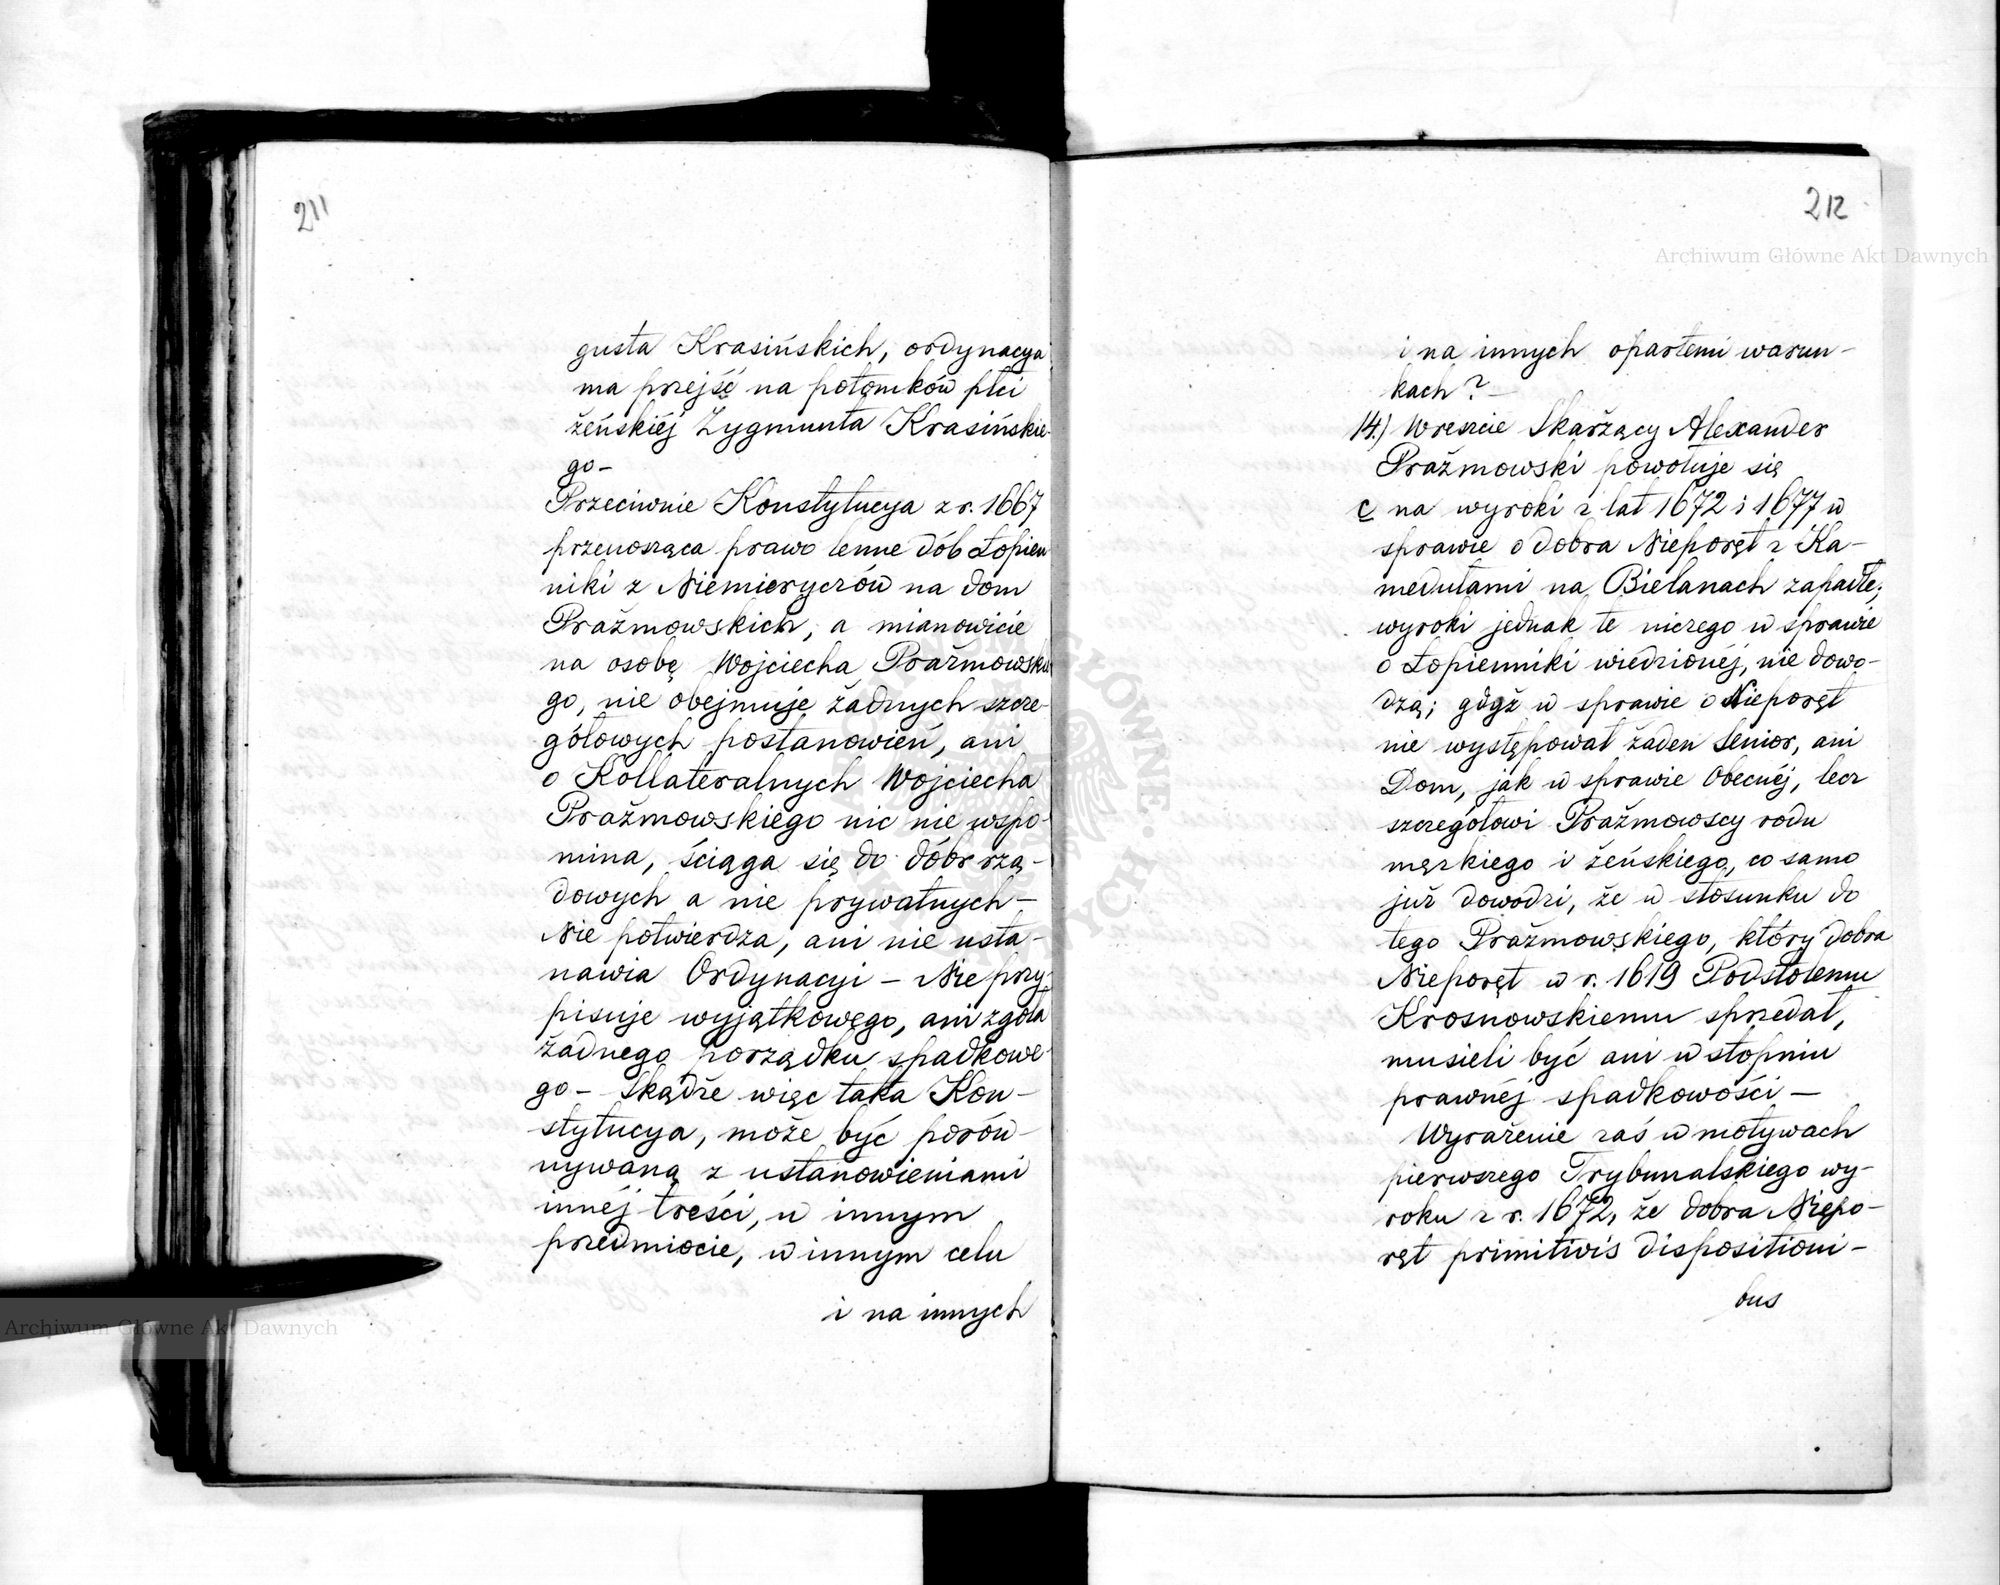 211
gusta Krasińskich, ordynacya
ma przejść na potomków płci
żeńskiéj Zygmunta Krasińskie-
go-
Przeciwnie Konstytucya z r. 1667
przenosząca prawo lenne dób Łopien
niki z Niemieryczów na dom
Prażmowskich, a mianowicie
na osobę Wojciecha Prażmowskie
go, nie obejmuje żadnych szcze-
gółowych postanowień, ani
o Kollateralnych Wojciecha
Prażmowskiego nic nie wspo-
mina, ściąga się do dóbr rzą-
dowych a nie prywatnych-
Nie potwierdza, ani nie usta-
nawia Ordynacyi - Nie przy-
pisuje wyjątkowego, ani zgoła
żadnego porządku spadkowe-
go - Skądże więc taka Kon-
stytucya, może być porów-
nywaną z ustanowieniami
innéj treści, w innym
przedmiocie, w innym celu
i na innych
212
i na innych opartemi warun-
kach? -
14.) Wreszcie Skarżący Alexander
Prażmowski powołuje się
c na wyroki z lat 1672 i 1677 w
sprawie o dobra Nieporęt z Ka-
medułami na Bielanach zapadłe;
wyroki jednak te niczego w sprawie
o Łopienniki wiedzionéj, nie dowo-
dzą; gdyż w sprawie o Nieporęt
nie występował żaden Senior, ani
Dom, jak w sprawie Obecnéj, lecz
szczegółowi Prażmowscy rodu
męzkiego i żeńskiego, co samo
już dowodzi, że w stosunku do
tego Prażmowskiego, który dobra
Nieporęt w r. 1619 Podstolemu
Krosnowskiemu sprzedał,
musieli być ani w stopniu
prawnéj spadkowości -
Wyrażenie zaś w motywach
pierwszego Trybunalskiego wy-
roku z r. 1672, że dobra Niepo-
ręt primitivis dispositioni-
bus
Archiwum Główne Akt Dawnych
Archiwum Główne Akt Dawnych